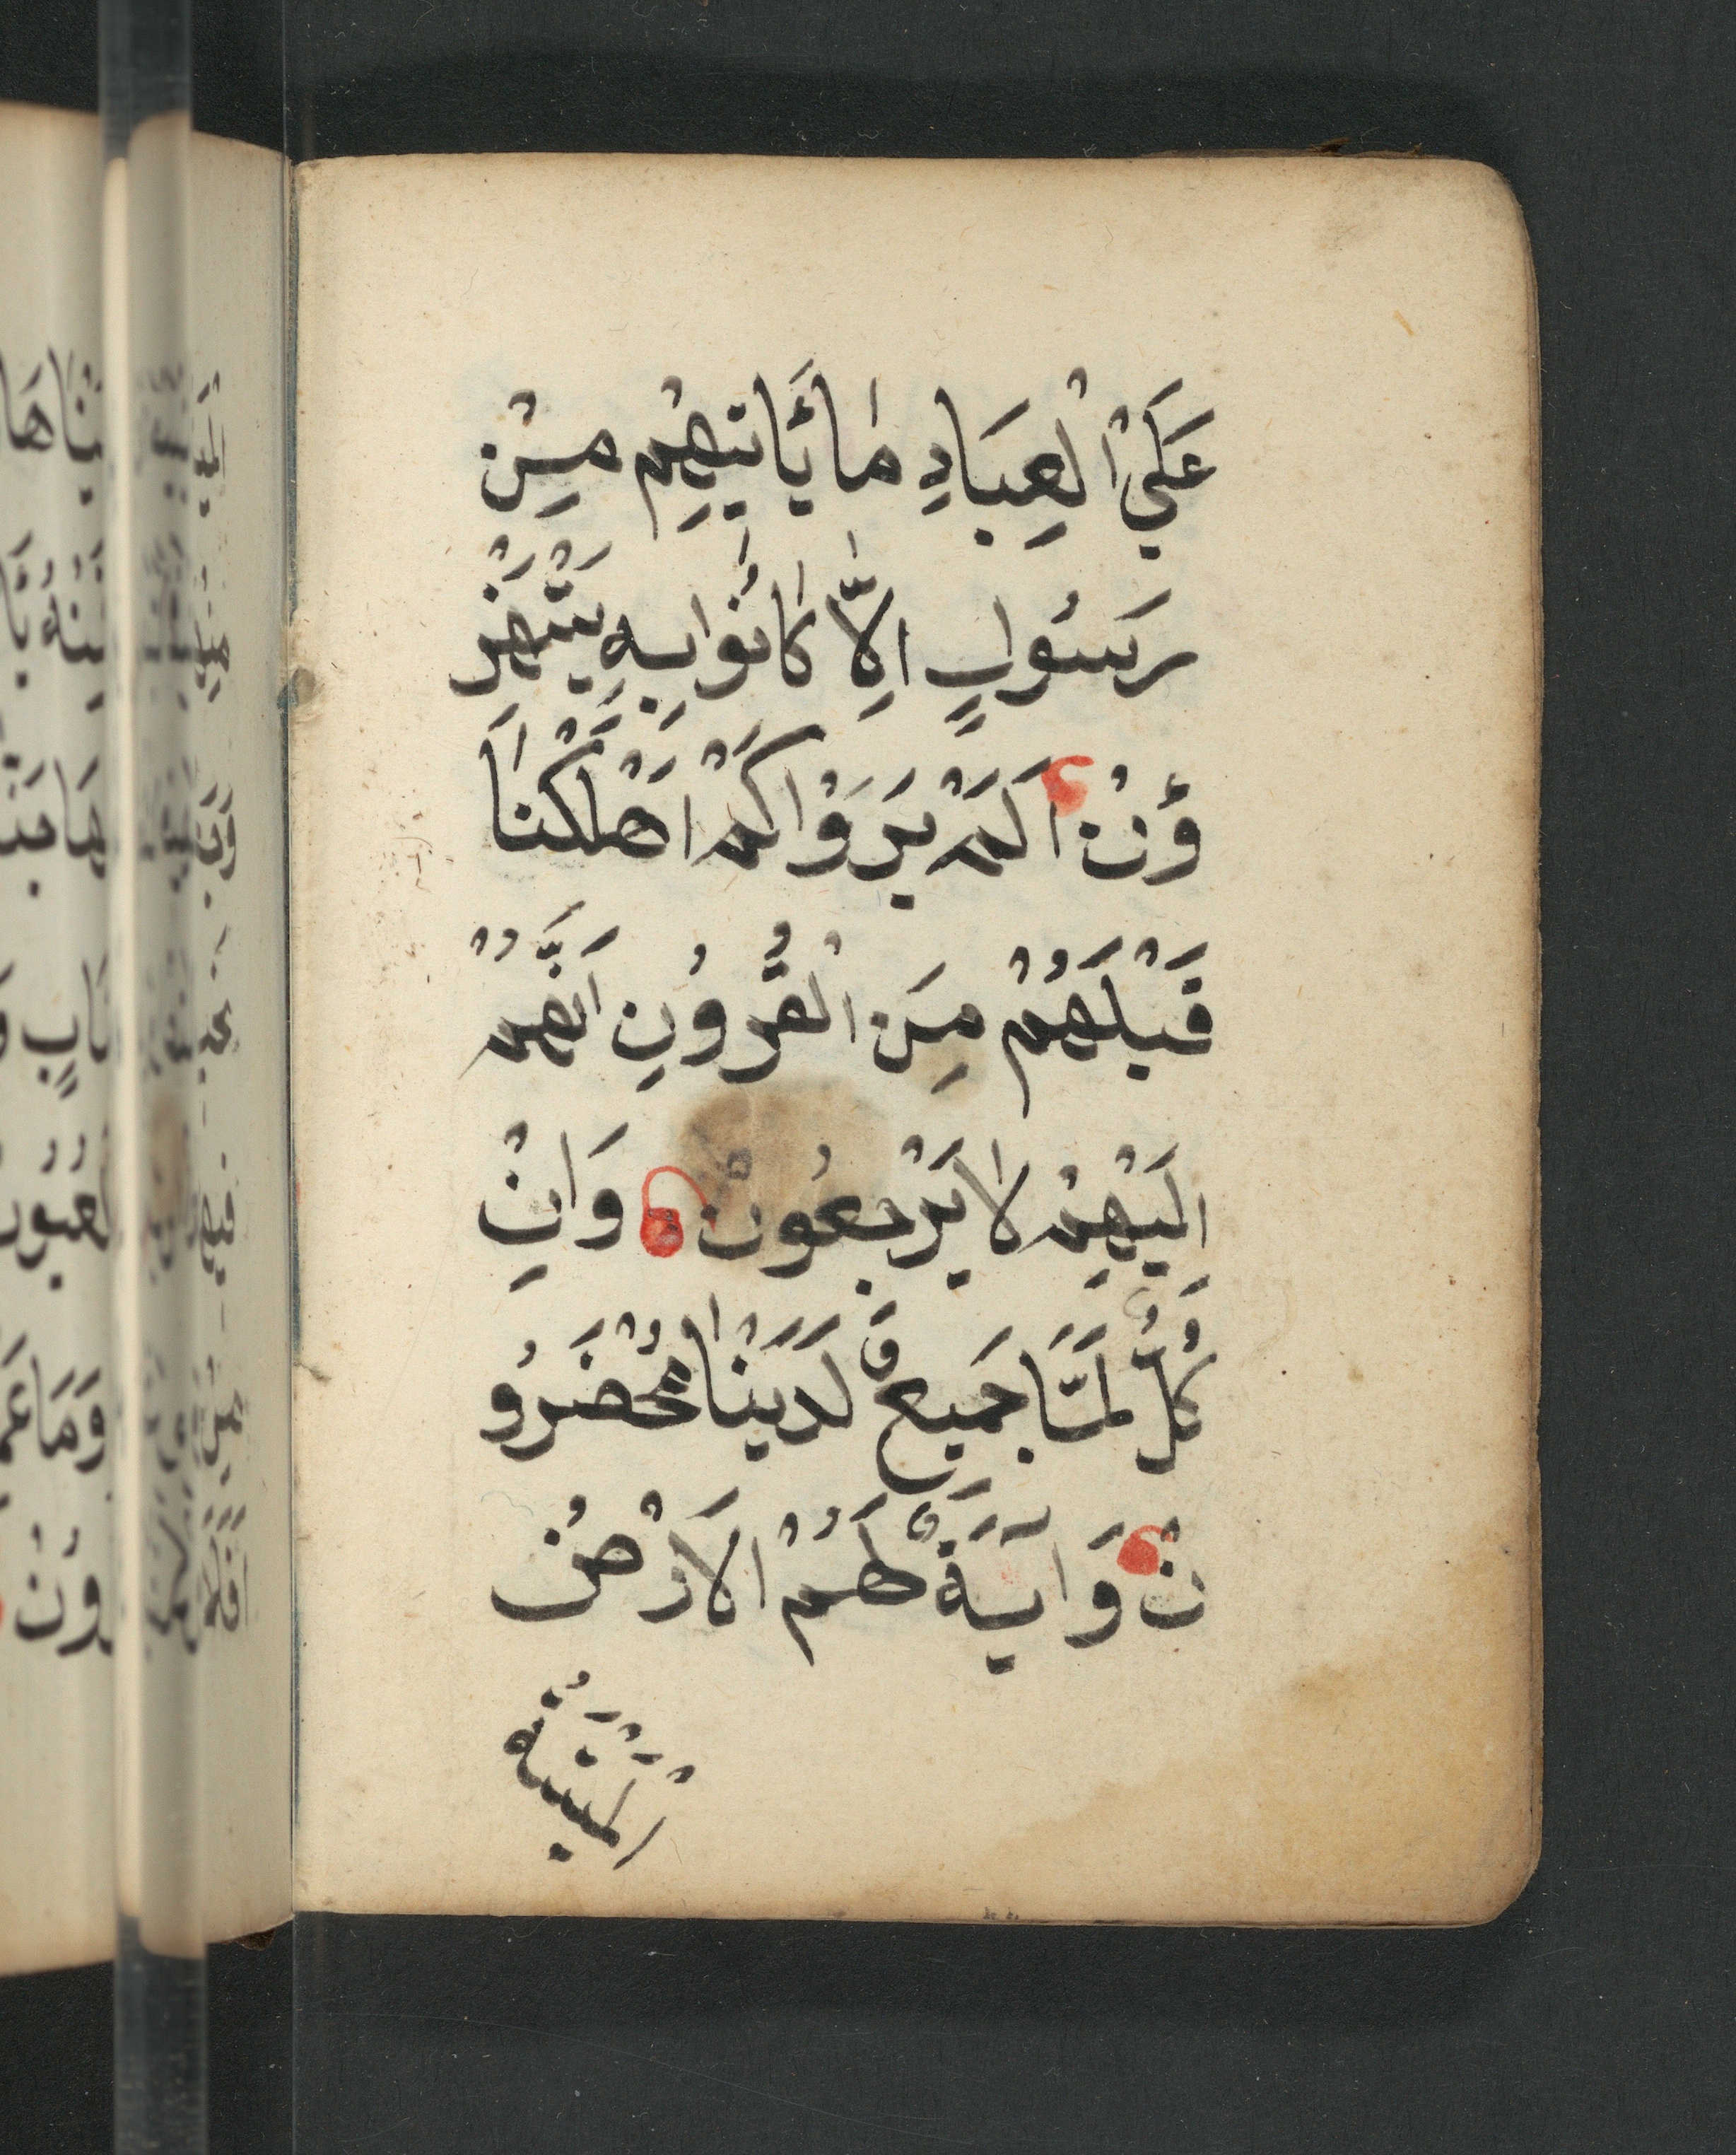 عَلَي الْعِبَادِ مَا يَأتِيهِمْ مِنْ
رَسُولٍ اِلَّا كَانُوا بِهِ يَسْتَهْزِ
ؤُنْ اَلَمْ يَرَوْا كَمْ اَهْلَكْنَا
قَبْلَهُمْ مِنَ الْقُرُونِ اَنَّهُمْ
اِلَيْهِمْ لَا يَرْجِعُونْ وَاِنْ
كُلٌّ لَمَّا جَمِيعٌ لَدَيْنَا مُحْضَرُو
نْ وَاٰيَةٌ لَهُمُ الْاَرْضُ
الْمَيْتَةُ